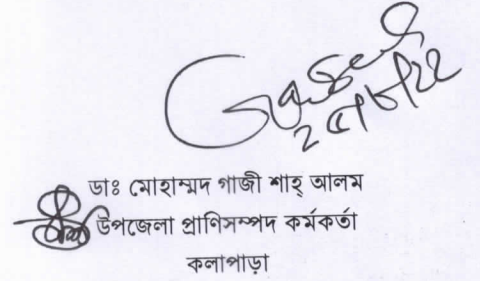 ডাঃ মোহাম্মদ গাজী শাহ্ আলম
উপজেলা প্রাণিসম্পদ কর্মকর্তা
কলাপাড়া